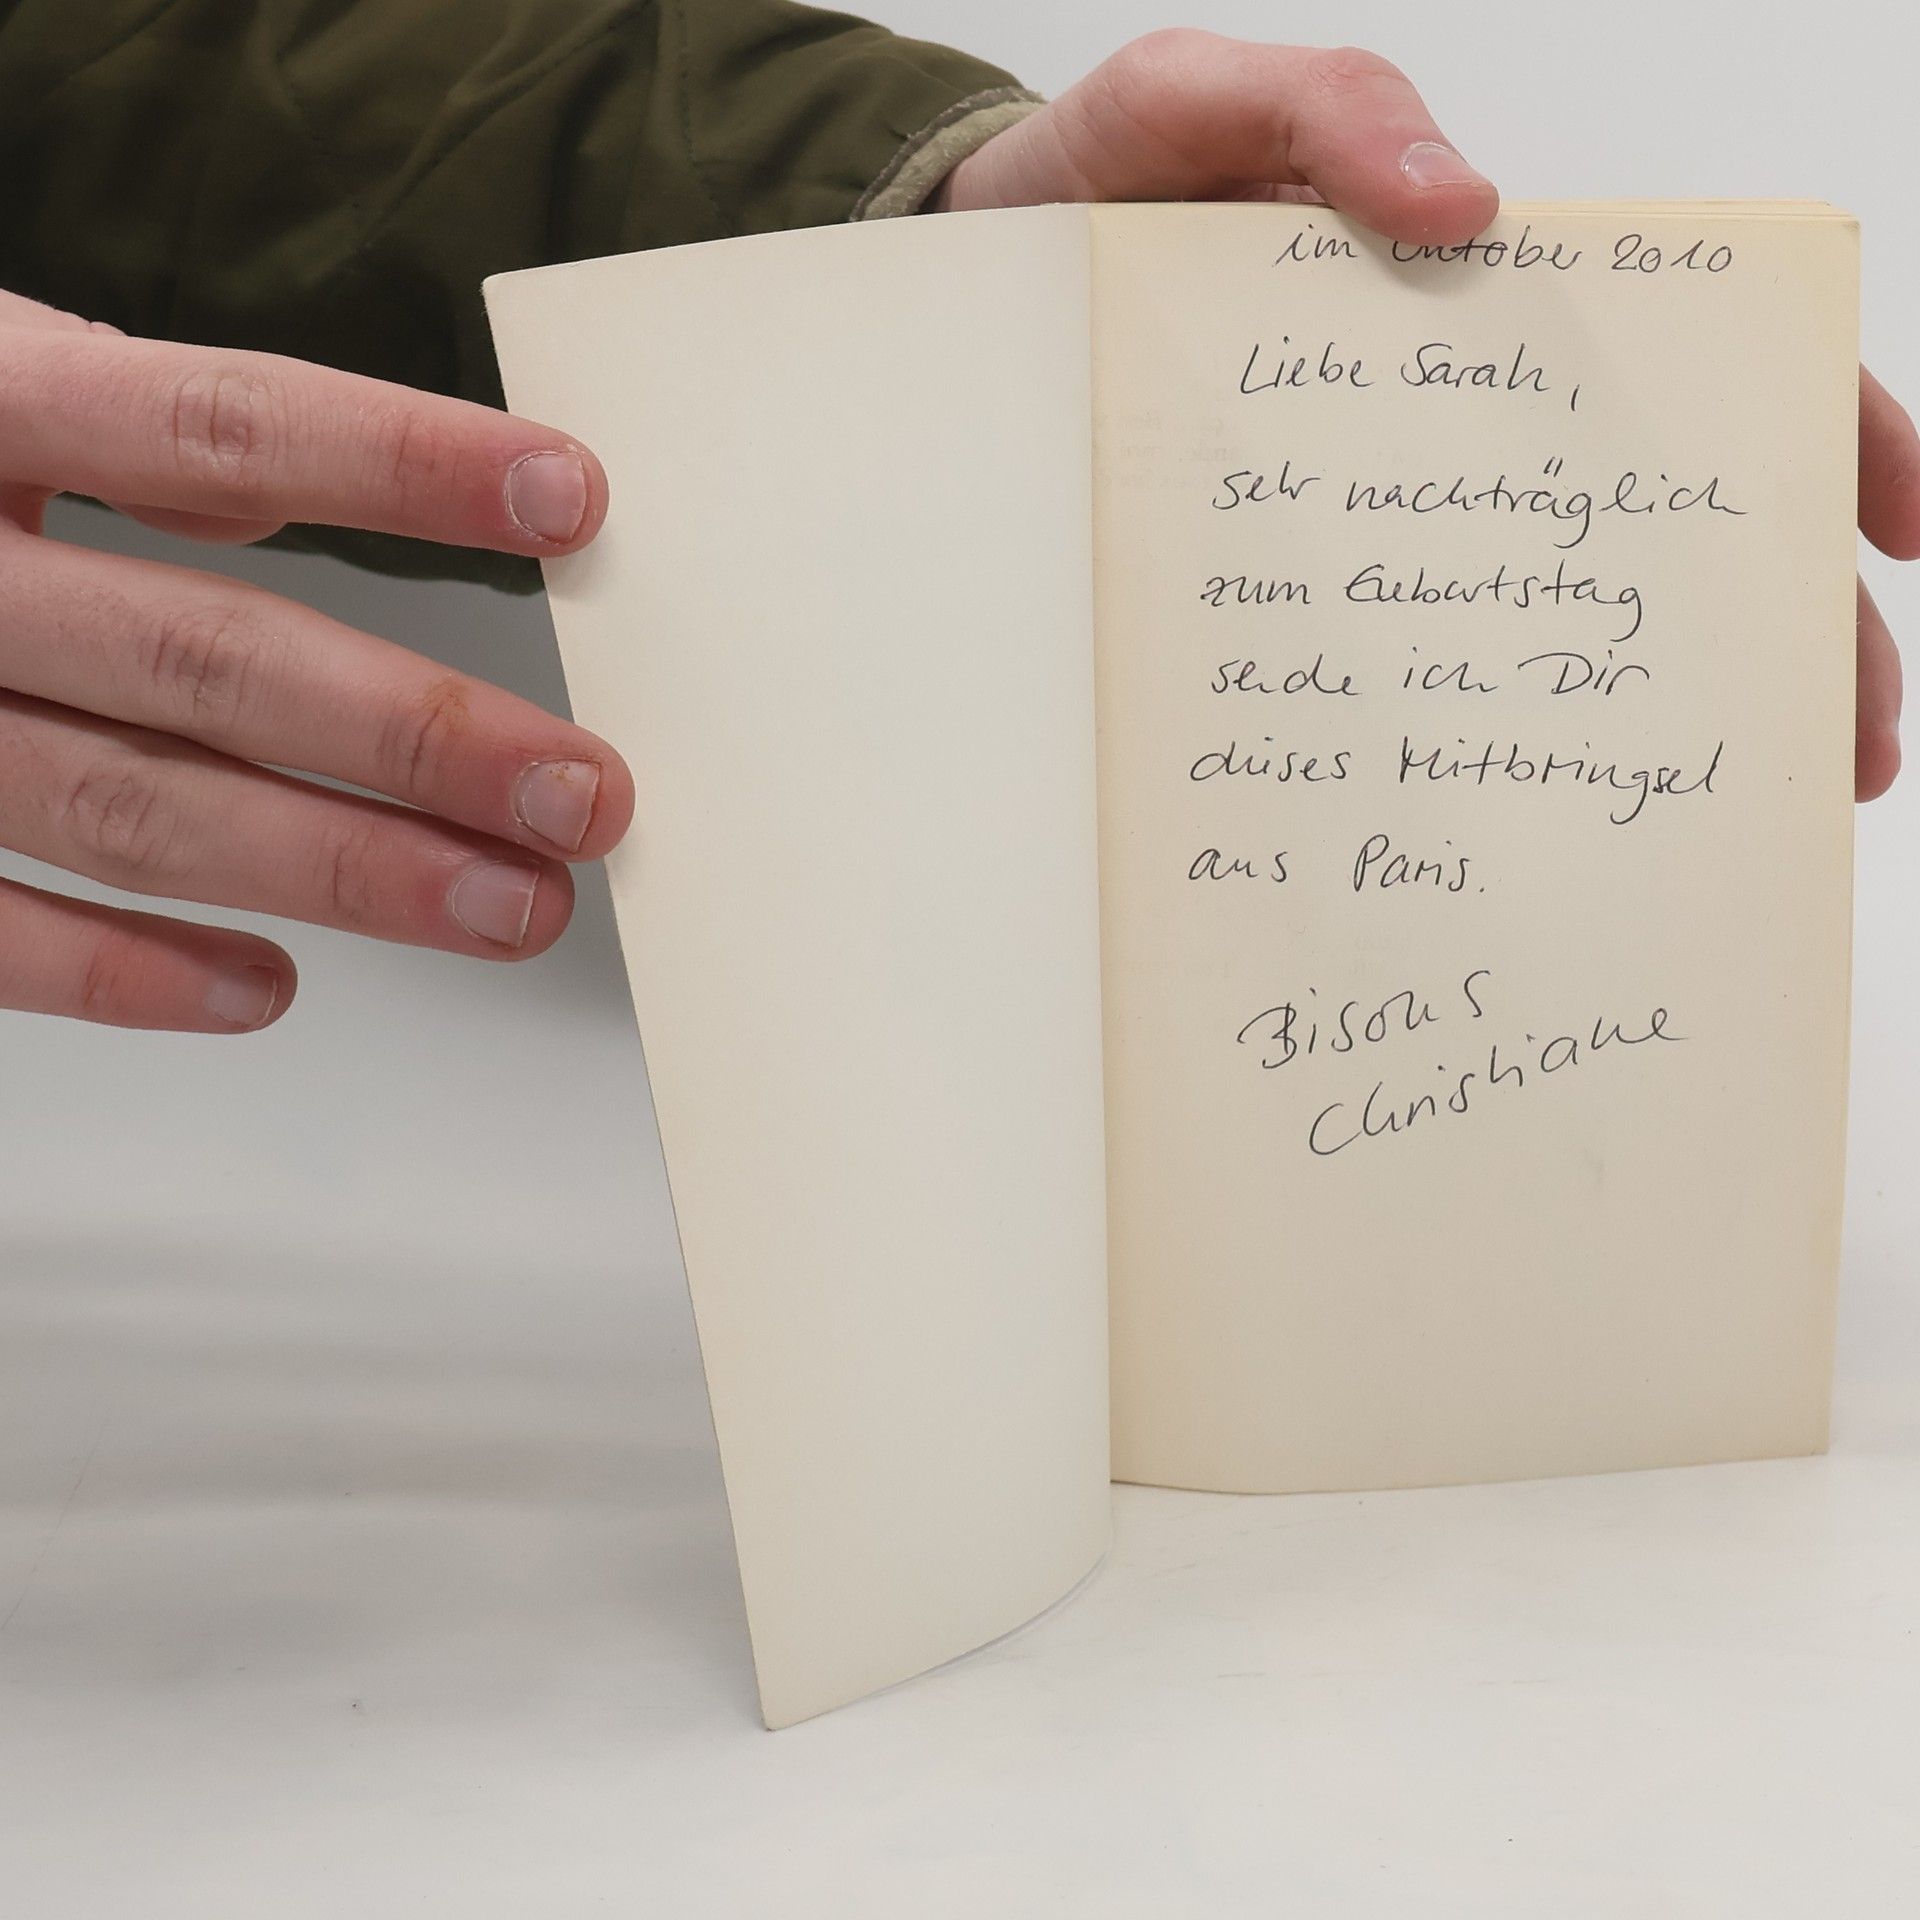 im Oktober 2010
Liebe Sarah,
sehr nachträglich
zum Geburtstag
sende ich Dir
dieses Mitbringsel
aus Paris.
Bisous
Christiane